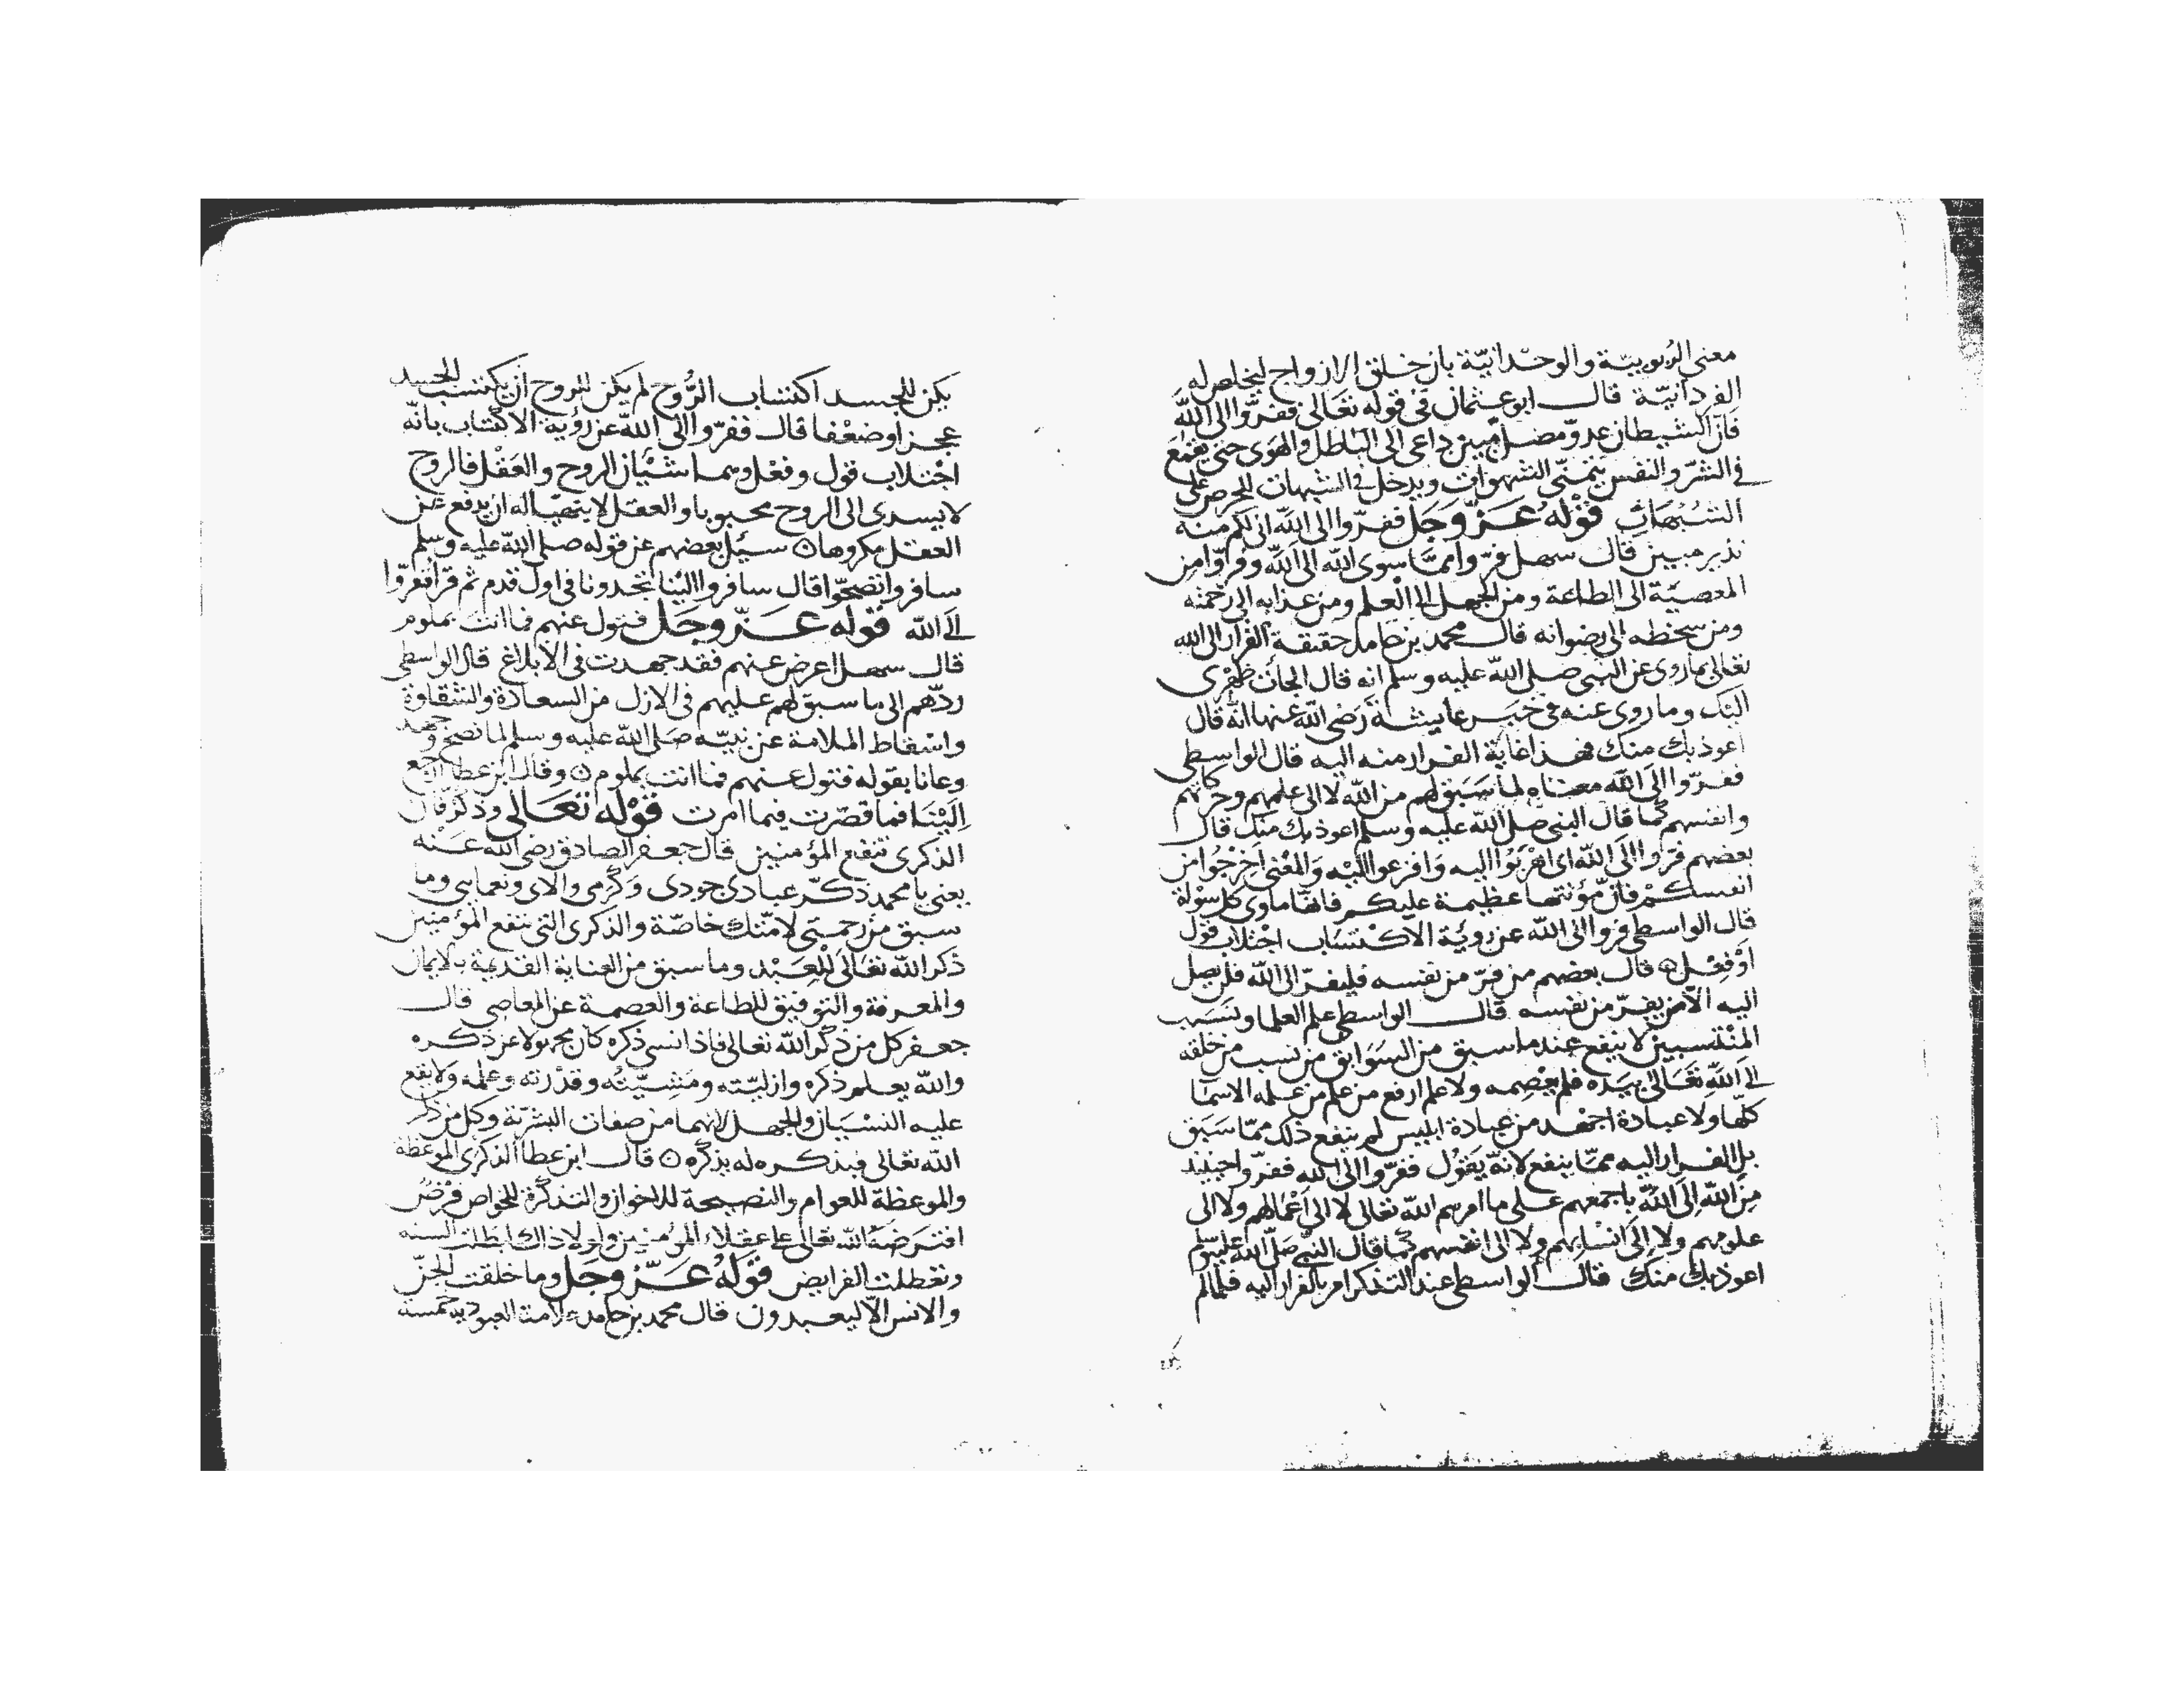 معنى الربوبيّة والوحدانيّة بان خلق الازواج ليخلص له
الفردانيّة قال ابو عثمان فى قوله تعالى ففرّوا الى الله
فان الشيطان عدوّ مضلّ مبين داعى الى الباطل والهوى حتى يقمع
فى الشرّ والنفس يتمنّى الشهوات ويدخل فى الشبهات للحرص على
الشُبُهات قوله عزّ وجل ففرّوا الى الله انى لكم منه
نذير مبين قال سهل فرّوا ممّا سوى الله الى الله وفرّوا من
المعصيّة الى الطاعة ومن الجهل الى العلم ومن عذابه الى رحمته
ومن سخطه الى رضوانه قال محمد بن حامد حقيقة الفرار الى الله
تعالى ما روى عن النبى صلى الله عليه وسلم انه قال الجات ظهرى
اليك وما روى عنه فى خبر عايشة رضى الله عنها انه قال
اعوذ بك منك فهذا غاية الفرار منه اليه قال الواسطى
ففرّوا الى الله معناه لما سبق لهم من الله لا الى علمهم وحركاتهم
وانفسهم كما قال النبى صلى الله عليه وسلم اعوذ بك منك قال
بعضهم فرّوا الى الله اى اهربوا اليه وافزعوا اليه والمعنى اخرجوا من
انفسكم فان مؤنتها عظيمة عليكم فانها ماوى كل سوءة
قال الواسطى فروا الى الله عن روية الاكتساب اجتلاب قول
او فعل قال بعضهم من فرّ من نفسه فليفرّ الى الله فلن يصل
اليه الا من يفرّ من نفسه قال الواسطى علم العلما ونسب
المنتسبين لا ينفع عند ما سبق من السوابق من نسب من خلقه
الى الله تعالى بيده فلم يعصمه ولا علم ارفع من علم من علمه الاسما
كلّها ولا عبادة اجهد من عبادة ابليس لم ينفع ذلك ممّا سبق
بل الفرار اليه ممّا ينفع لانه يقول ففرّوا الى الله ففرّوا حينئذ
من الله الى الله باجمعهم على ما امرهم الله تعالى لا الى اعمالهم ولا الى
علومهم ولا الى انسابهم ولا الى انفسهم كما قال النبى صلى الله عليه وسلم
اعوذ بك منك قال الواسطى عند التذكر امر بالفرار اليه فلما لم
يكن للجسد اكتساب الرُّوح لم يكن للروح ان يكتسب للجسد
عجزا وضعفا قال ففرّوا الى الله عن رؤية الاكتساب بانّه
اجتلاب قول وفعل وهما شيئان الروح والعقل فالروح
لا يسدى الى الروح محبوبا والعقل لا يتهيّا له ان يدفع عن
العقل مكروها سئل بعضهم عن قوله صلى الله عليه وسلم
سافروا تصحّوا قال سافروا الينا تجدونا فى اول قدم ثم قرا ففرّوا
الى الله قوله عزّ وجل فتول عنهم فما انت بملوم
قال سهل اعرض عنهم فقد جهدت فى الابلاغ قال الواسطى
ردّهم الى ما سبق لهم عليهم فى الازل من السعادة والشقاوة
واسقاط الملامة عن نبيّه صلى الله عليه وسلم لما نصح وجهد
وعانا بقوله فتول عنهم فما انت بملوم وقال ابن عطا ارجع
الينا فما قصّرت فيما امرت قوله تعالى وذكّر فان
الذكرى تنفع المؤمنين قال جعفر الصادق رضى الله عنه
يعنى يا محمد ذكّر عبادى جودى وكرمى والاى ونعماىى وما
سبق من رحمتى لامّتك خاصّة والذكرى التى تنفع المؤمنين
ذكر الله تعالى للعبد وما سبق من العناية القديمة بالايمان
والمعرفة والتوفيق للطاعة والعصمة عن المعاصى قال
جعفر كل من ذكر الله تعالى فاذا نسى ذكره كان مجهولا عن ذكره
والله يعلم ذكره وازليّته ومشيّئته وقدرته وعلمه ولا يقع
عليه النسيان والجهل لانهما من صفات البشريّة وكل من ذكر
الله تعالى فبذكره له يذكره قال ابن عطا الذكرى الموعظة
والموعظة للعوام والنصيحة للاخوان والتذكرة للخواص فرض
افترضه الله تعالى على عقلاء المؤمنين ولولا ذاك لبطلت السنه
وتعطلت الفرايض قوله عزّ وجل وما خلقت الجنّ
والانس الّا ليعبدون قال محمد بن حامد علامة العبوديه خمسة